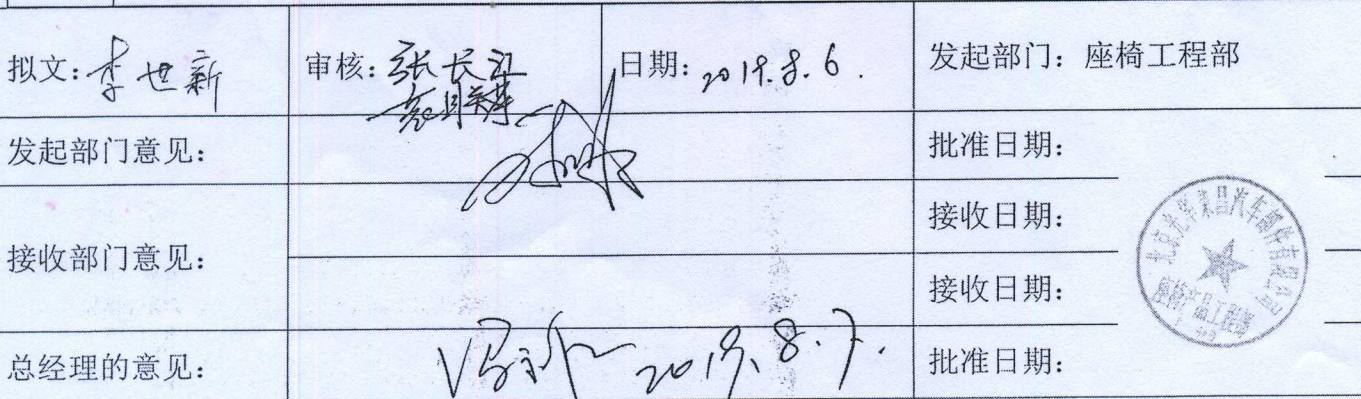 拟文：李世新 审核：张长 日期：2019.8.6. 发起部门：座椅工程部
发起部门意见： 批准日期：
接收部门意见： 接收日期：
接收日期：
总经理的意见： 2019.8.7. 批准日期：
北京光华荣昌汽车部件有限公司
座椅产品工程部